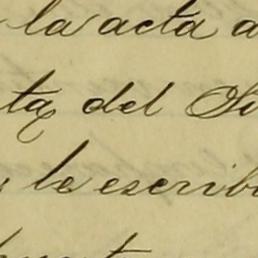 la acta a
ta del Si
le escribi